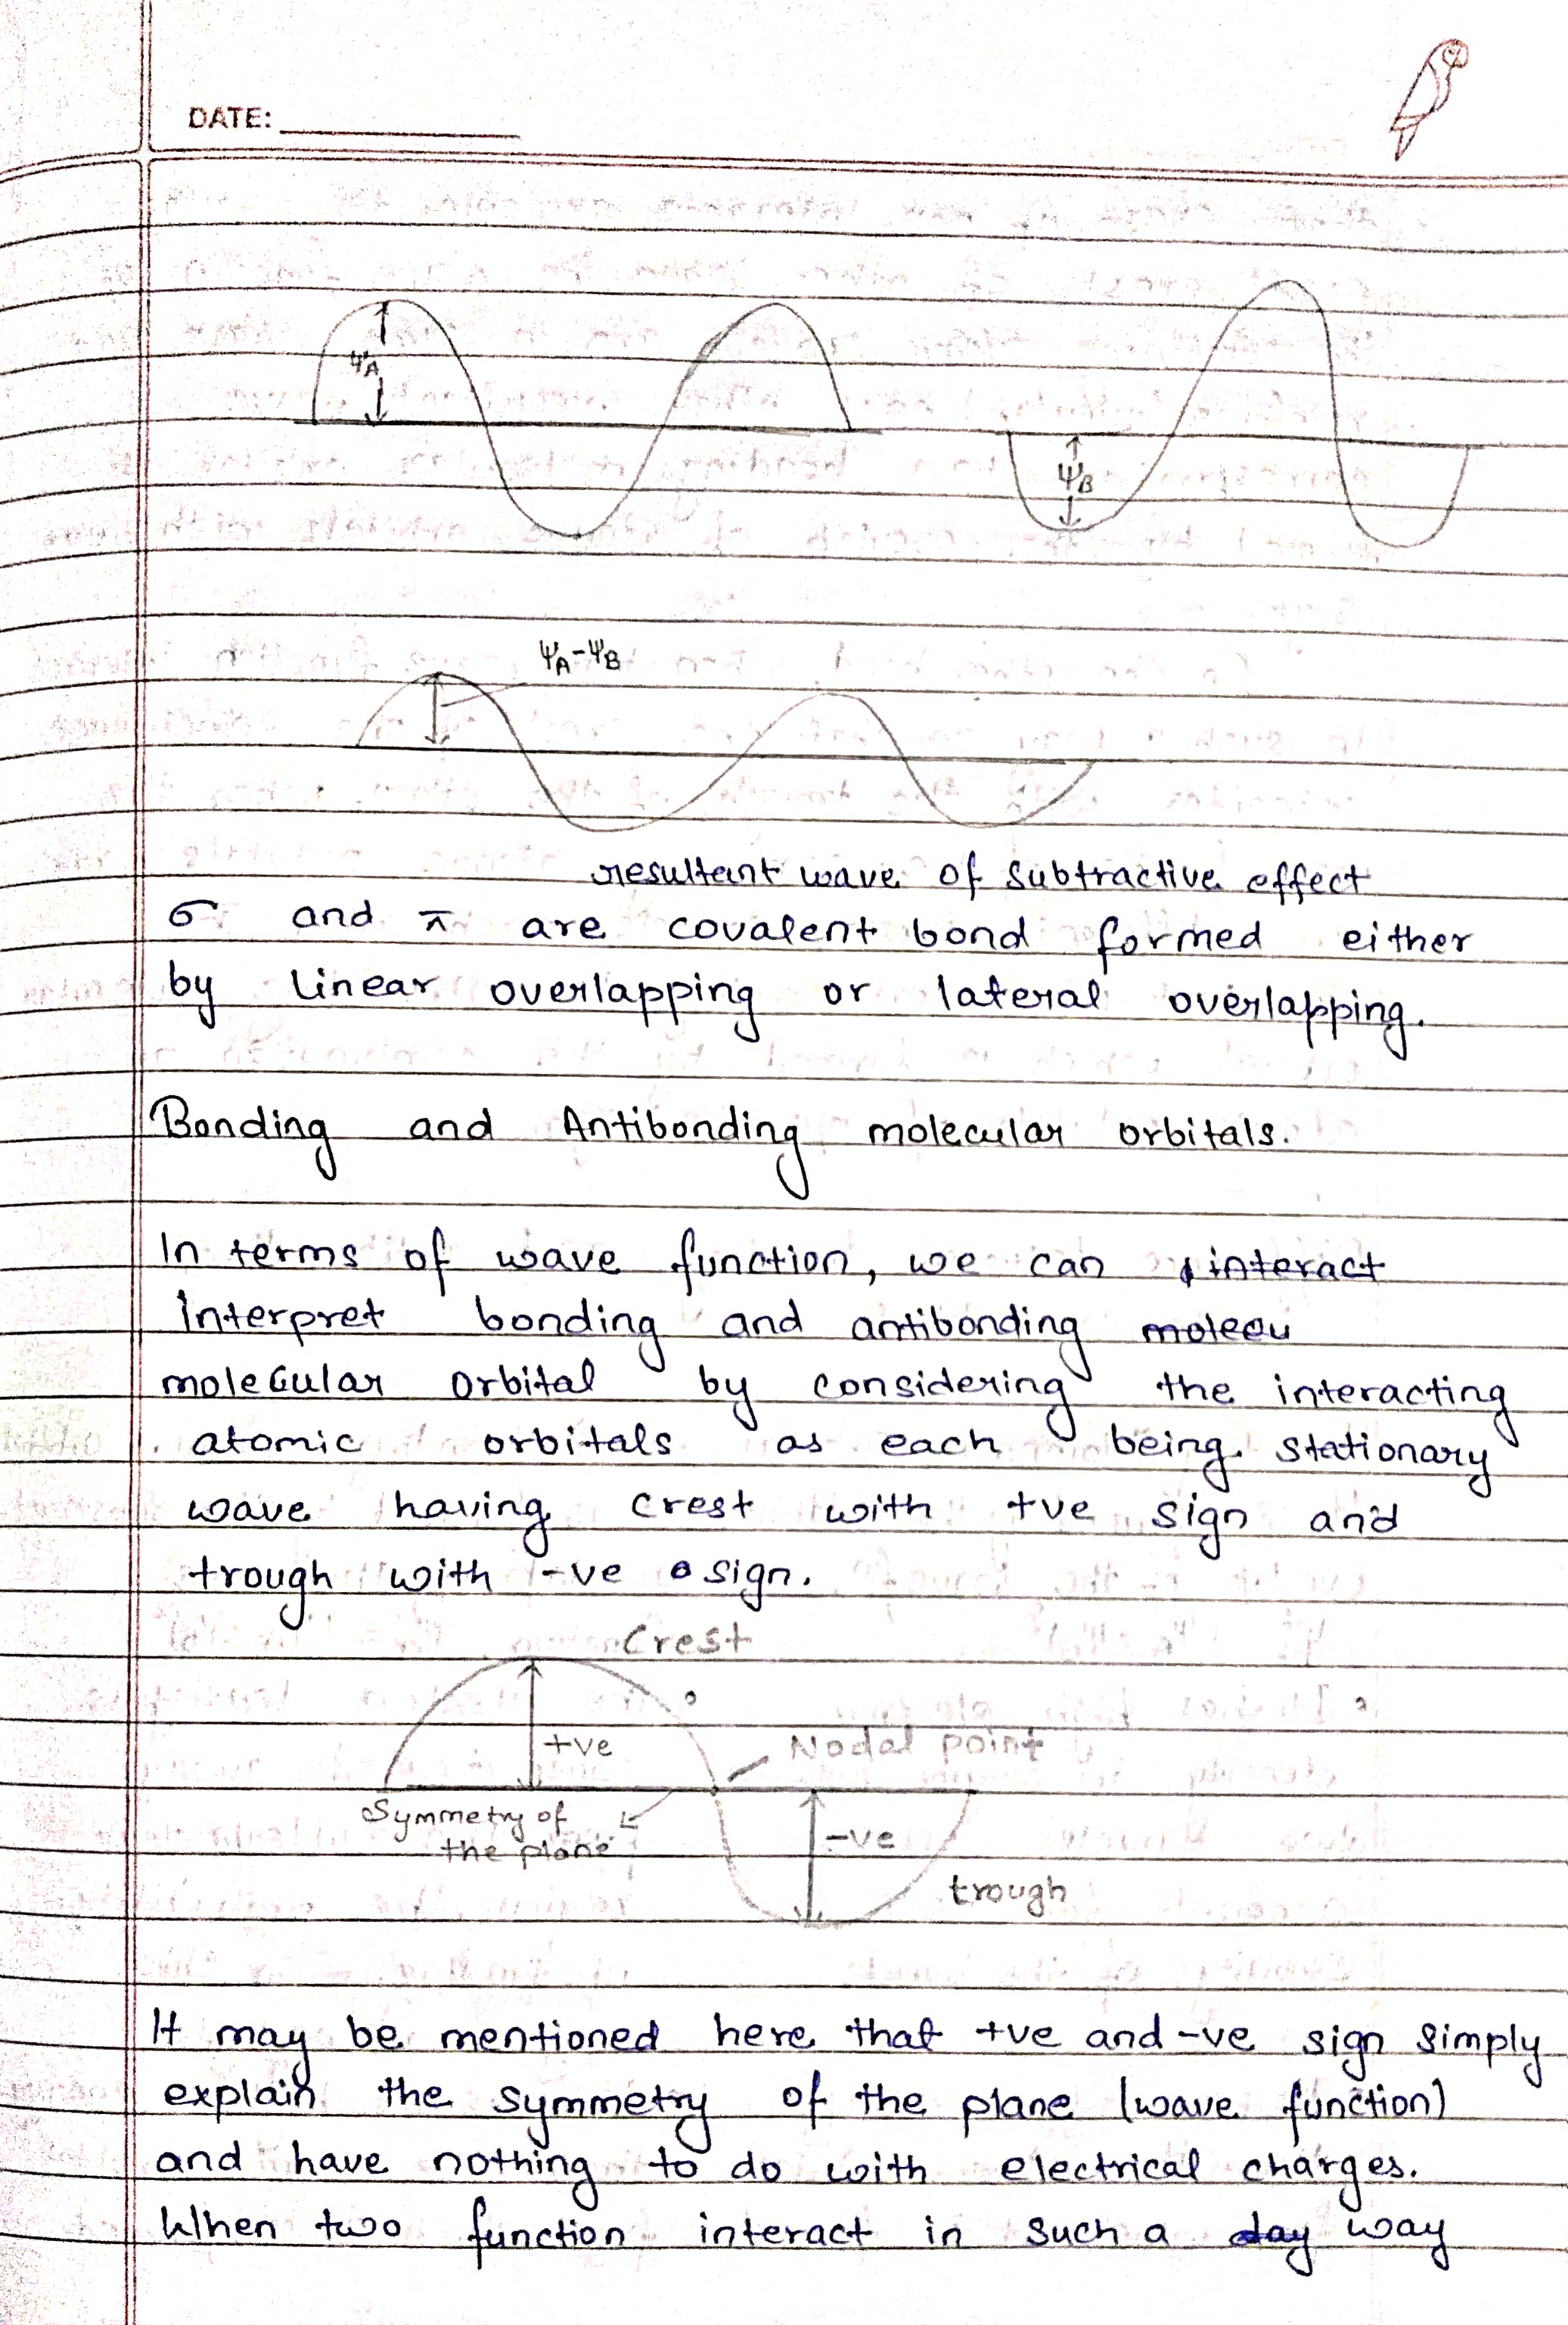 DATE:
ΨA
ΨB
ΨA-ΨB
resultant wave of subtractive effect
σ and π are covalent bond formed either
by linear overlapping or lateral overlapping.
Bonding and Antibonding molecular orbitals.
In terms of wave function, we can interact
interpret bonding and antibonding molecu
molecular orbital by considering the interacting
atomic orbitals as each being stationary
wave having crest with +ve sign and
trough with -ve sign.
Crest
+ve
Nodal point
Symmetry of
the plane
-ve
trough
It may be mentioned here that +ve and -ve sign simply
explain the symmetry of the plane (wave function)
and have nothing to do with electrical charges.
When two function interact in such a day way